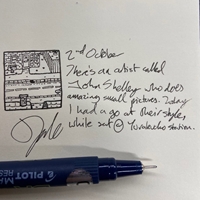 2nd October
There's an artist called
John Shelley who does
amazing small pictures. Today
I had a go at their style,
while sat @ station.
PILOT